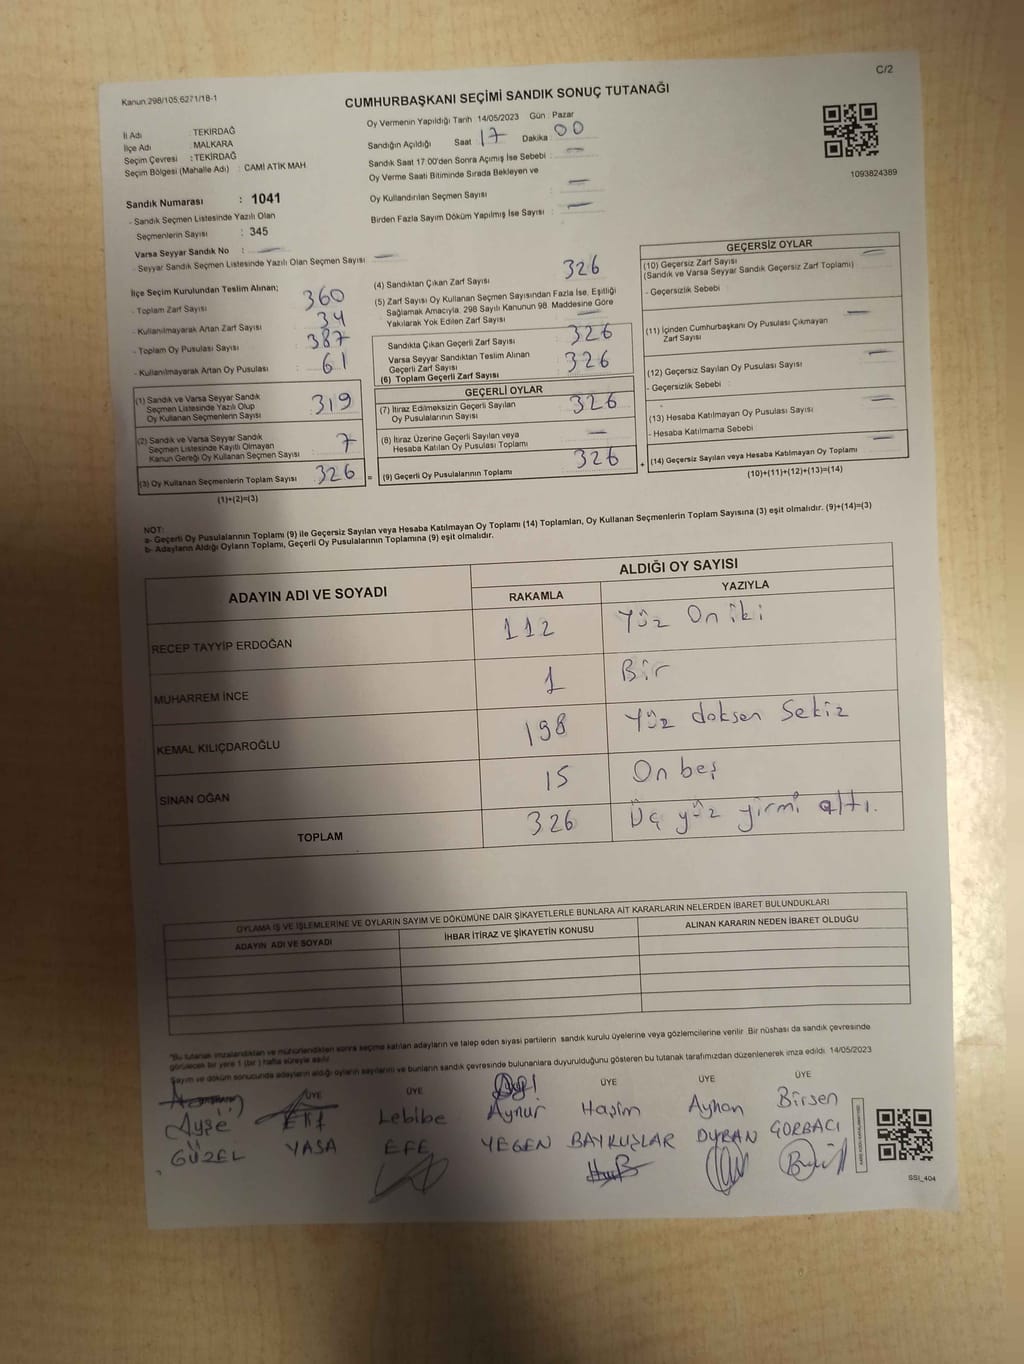 C/2
Kanun 298/105,6271/18-1
CUMHURBAŞKANI SEÇİMİ SANDIK SONUÇ TUTANAĞI
İl Adı : TEKİRDAĞ
İlçe Adı : MALKARA
Seçim Çevresi : TEKİRDAĞ
Seçim Bölgesi (Mahalle Adı) : CAMİ ATİK MAH
Sandık Numarası : 1041
- Sandık Seçmen Listesinde Yazılı Olan
Seçmenlerin Sayısı : 345
Varsa Seyyar Sandık No : —
- Seyyar Sandık Seçmen Listesinde Yazılı Olan Seçmen Sayısı —
Oy Vermenin Yapıldığı Tarih 14/05/2023 Gün : Pazar
Sandığın Açıldığı Saat 17 Dakika : 00
Sandık Saat 17:00'den Sonra Açımış İse Sebebi : —
Oy Verme Saati Bitiminde Sırada Bekleyen ve
Oy Kullandırılan Seçmen Sayısı —
Birden Fazla Sayım Döküm Yapılmış İse Sayısı : —
1093824389
İlçe Seçim Kurulundan Teslim Alınan;
- Toplam Zarf Sayısı 360
- Kullanılmayarak Artan Zarf Sayısı 34
- Toplam Oy Pusulası Sayısı 387
- Kullanılmayarak Artan Oy Pusulası 61
(1) Sandık ve Varsa Seyyar Sandık
Seçmen Listesinde Yazılı Olup
Oy Kullanan Seçmenlerin Sayısı 319
(2) Sandık ve Varsa Seyyar Sandık
Seçmen Listesinde Kayıtlı Olmayan
Kanun Gereği Oy Kullanan Seçmen Sayısı 7
(3) Oy Kullanan Seçmenlerin Toplam Sayısı 326
(1)+(2)=(3)
(4) Sandıktan Çıkan Zarf Sayısı 326
(5) Zarf Sayısı Oy Kullanan Seçmen Sayısından Fazla İse, Eşitliği
Sağlamak Amacıyla, 298 Sayılı Kanunun 98. Maddesine Göre
Yakılarak Yok Edilen Zarf Sayısı —
Sandıkta Çıkan Geçerli Zarf Sayısı 326
Varsa Seyyar Sandıktan Teslim Alınan
Geçerli Zarf Sayısı
(6) Toplam Geçerli Zarf Sayısı 326
GEÇERLİ OYLAR
(7) İtiraz Edilmeksizin Geçerli Sayılan
Oy Pusulalarının Sayısı 326
(8) İtiraz Üzerine Geçerli Sayılan veya
Hesaba Katılan Oy Pusulası Toplamı —
= (9) Geçerli Oy Pusulalarının Toplamı 326
GEÇERSİZ OYLAR
(10) Geçersiz Zarf Sayısı —
(Sandık ve Varsa Seyyar Sandık Geçersiz Zarf Toplamı)
- Geçersizlik Sebebi :
(11) İçinden Cumhurbaşkanı Oy Pusulası Çıkmayan —
Zarf Sayısı
(12) Geçersiz Sayılan Oy Pusulası Sayısı —
- Geçersizlik Sebebi :
(13) Hesaba Katılmayan Oy Pusulası Sayısı —
- Hesaba Katılmama Sebebi
+ (14) Geçersiz Sayılan veya Hesaba Katılmayan Oy Toplamı —
(10)+(11)+(12)+(13)=(14)
NOT:
a- Geçerli Oy Pusulalarının Toplamı (9) ile Geçersiz Sayılan veya Hesaba Katılmayan Oy Toplamı (14) Toplamları, Oy Kullanan Seçmenlerin Toplam Sayısına (3) eşit olmalıdır. (9)+(14)=(3)
b- Adayların Aldığı Oyların Toplamı, Geçerli Oy Pusulalarının Toplamına (9) eşit olmalıdır.
ADAYIN ADI VE SOYADI ALDIĞI OY SAYISI
RAKAMLA YAZIYLA
RECEP TAYYİP ERDOĞAN 112 Yüz On iki
MUHARREM İNCE 1 Bir
KEMAL KILIÇDAROĞLU 198 Yüz doksan Sekiz
SİNAN OĞAN 15 On beş
TOPLAM 326 Üç yüz yirmi altı.
OYLAMA İŞ VE İŞLEMLERİNE VE OYLARIN SAYIM VE DÖKÜMÜNE DAİR ŞİKAYETLERLE BUNLARA AİT KARARLARIN NELERDEN İBARET BULUNDUKLARI
ADAYIN ADI VE SOYADI İHBAR İTİRAZ VE ŞİKAYETİN KONUSU ALINAN KARARIN NEDEN İBARET OLDUĞU
"Bu tutanak imzalandıktan ve mühürlendikten sonra seçime katılan adayların ve talep eden siyasi partilerin sandık kurulu üyelerine veya gözlemcilerine verilir. Bir nüshası da sandık çevresinde
görülecek bir yere 1 (bir) hafta süreyle asılır.
Sayım ve döküm sonucunda adayların aldığı oyların sayılarını ve bunların sandık çevresinde bulunanlara duyurulduğunu gösteren bu tutanak tarafımızdan düzenlenerek imza edildi. 14/05/2023
ÜYE ÜYE ÜYE ÜYE ÜYE ÜYE
Ayşe Elif Lebibe Aynur Haşim Ayhan Birsen
GÜZEL YASA EFE YEGEN BAYKUŞLAR DURAN GORBACI
SSI_404